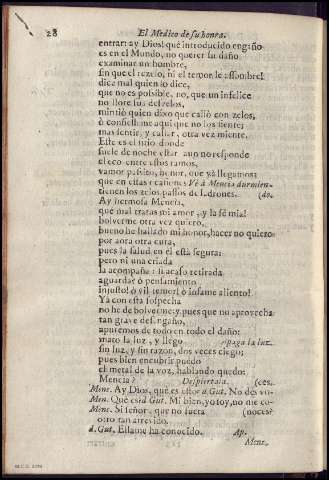 28
El Medico de su honra.
entrar: ay Dios! què introducido engaño
es en el Mundo, no querer su daño
examinar un hombre,
sin que el rezelo, ni el temor le assombre!
dice mal quien lo dice,
que no es possible, no, que un infelice
no llore sus desvelos,
mintiò quien dixo que callò con zelos,
ò confiesseme aqui que no los siente;
mas sentir, y callar, otra vez miente.
Este es el sitio donde
suele de noche estar, aun no responde
el eco entre estos ramos,
vamos passito, honor, que yà llegamos;
que en estas ocasiones Vè à Mencia durmien-
tienen los zelos passos de ladrones. (do.
Ay hermosa Mencia,
què mal tratas mi amor, y la fè mia!
bolverme otra vez quiero,
bueno he hallado mi honor, hacer no quiero
por aora otra cura,
pues la salud en èl està segura:
pero ni una criada
la acompaña? si acaso retirada
aguarda? ò pensamiento
injusto! ò vil temor! ò infame aliento!
Yà con esta sospecha
no he de bolverme; y pues que no aprovecha
tan grave desengaño,
apuremos de todo en todo el daño:
mato la luz, y llego Apaga la luz.
sin luz, y sin razon, dos veces ciego;
pues bien encubrir puedo
el metal de la voz, hablando quedo:
Mencia? Despiertala. (ces.
Menc. Ay Dios, què es esto? d. Gut. No des vo-
Men. Quien es? d. Gut. Mi bien, yo soy, no me co-
Menc. Si señor, que no fuera (noces?
otro tan atrevido.
d. Gut. Ella me ha conocido. Ap.
Menc.